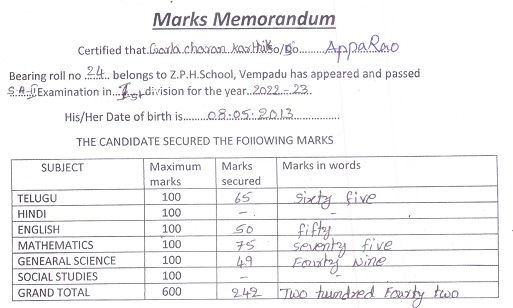 Marks Memorandum
Certified that Gorla charan karthik So/Do AppaRao
Bearing roll no .24.. belongs to Z.P.H.School, Vempadu has appeared and passed
S.A-II Examination in...Ist division for the year..2022-23..
His/Her Date of birth is..........08.05.2013..............
THE CANDIDATE SECURED THE FOllOWING MARKS
SUBJECT Maximum marks Marks secured Marks in words
TELUGU 100 65 Sixty five
HINDI 100 - -
ENGLISH 100 50 fifty
MATHEMATICS 100 75 Seventy five
GENEARAL SCIENCE 100 49 Fourty Nine
SOCIAL STUDIES 100 - -
GRAND TOTAL 600 242 Two hundred Fourty two